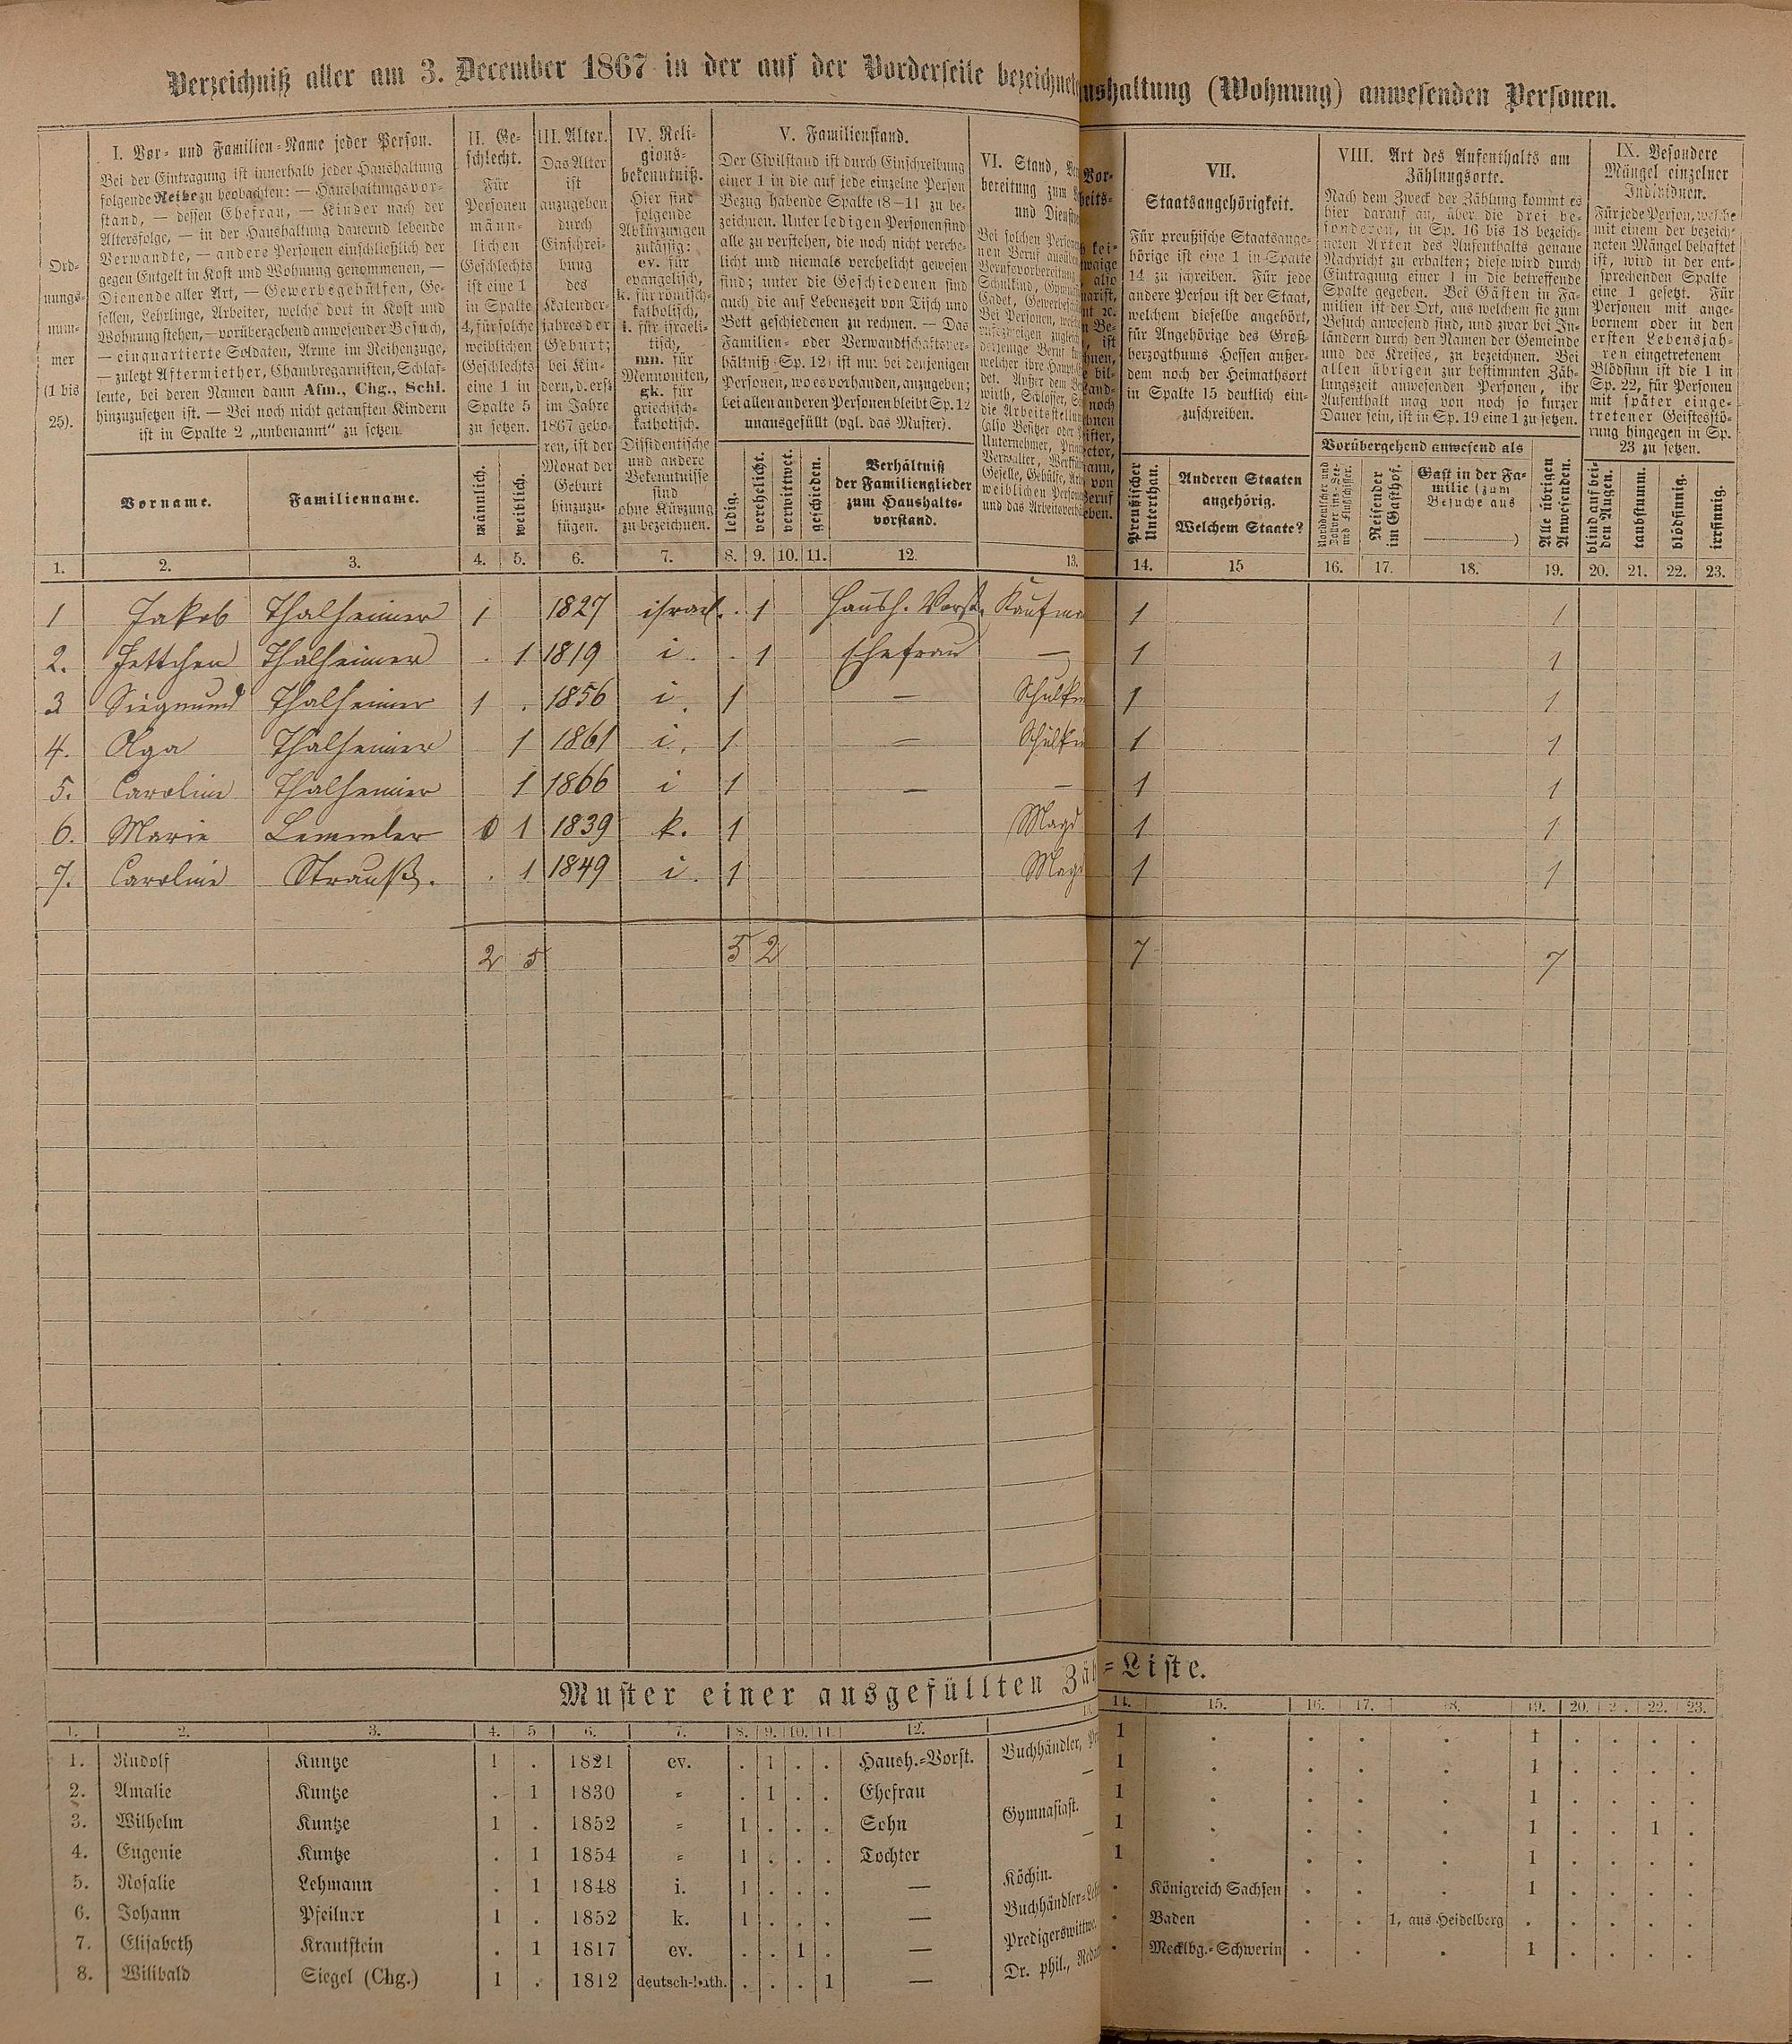 Verzeichniß aller am 3. December 1867 in der auf der Vorderseite bezeichnet ushaltung (Wohnung) anwesenden Personen.
Ord-
nungs-
num-
mer
(1 bis
25).
I. Vor- und Familien-Name jeder Person.
Bei der Eintragung ist innerhalb jeder Haushaltung
folgende Reihe zu beobachten: — Haushaltungsvor-
stand, — dessen Ehefrau, — Kinder nach der
Altersfolge, — in der Haushaltung dauernd lebende
Verwandte, — andere Personen einschließlich der
gegen Entgelt in Kost und Wohnung genommenen, —
Dienende aller Art, — Gewerbegehülfen, Ge-
sellen, Lehrlinge, Arbeiter, welche dort in Kost und
Wohnung stehen, — vorübergehend anwesender Besuch,
— einquartierte Soldaten, Arme im Reihenzuge,
— zuletzt Aftermiether, Chambregarnisten, Schlaf-
leute, bei deren Namen dann Afm., Chg., Schl.
hinzuzusetzen ist. — Bei noch nicht getauften Kindern
ist in Spalte 2 „unbenannt" zu setzen.
Vorname.
Familienname.
II. Ge-
schlecht.
Für
Personen
männ-
lichen
Geschlechts
ist eine 1
in Spalte
4, für solche
weiblichen
Geschlechts
eine 1 in
Spalte 5
zu setzen.
männlich.
weiblich.
III. Alter.
Das Alter
ist
anzugeben
durch
Einschrei-
bung
des
Kalender-
jahres der
Geburt;
bei Kin-
dern, d. erst
im Jahre
1867 gebo-
ren, ist der
Monat der
Geburt
hinzuzu-
fügen.
IV. Reli-
gions-
bekenntniß.
Hier sind
folgende
Abkürzungen
zulässig:
ev. für
evangelisch,
k. für römisch-
katholisch,
i. für israeli-
tisch,
mn. für
Mennoniten,
gk. für
griechisch-
katholisch.
Dissidentische
und andere
Bekenntnisse
sind
ohne Kürzung
zu bezeichnen.
V. Familienstand.
Der Civilstand ist durch Einschreibung
einer 1 in die auf jede einzelne Person
Bezug habende Spalte (8—11) zu be-
zeichnen. Unter ledigen Personen sind
alle zu verstehen, die noch nicht verehe-
licht und niemals verehelicht gewesen
sind; unter die Geschiedenen sind
auch die auf Lebenszeit von Tisch und
Bett geschiedenen zu rechnen. — Das
Familien- oder Verwandtschaftsver-
hältniß (Sp. 12) ist nur bei denjenigen
Personen, wo es vorhanden, anzugeben;
bei allen anderen Personen bleibt Sp. 12
unausgefüllt (vgl. das Muster).
ledig.
verehelicht.
verwittwet.
geschieden.
Verhältniß
der Familienglieder
zum Haushalts-
vorstand.
VI. Stand,
bereitung zum
und Dienst
VII.
Staatsangehörigkeit.
Für preußische Staatsange-
hörige ist eine 1 in Spalte
14 zu schreiben. Für jede
andere Person ist der Staat,
welchem dieselbe angehört,
für Angehörige des Groß-
herzogthums Hessen außer-
dem noch der Heimathsort
in Spalte 15 deutlich ein-
zuschreiben.
Preußischer
Unterthan.
Anderen Staaten
angehörig.
Welchem Staate?
VIII. Art des Aufenthalts am
Zählungsorte.
Nach dem Zweck der Zählung kommt es
hier darauf an, über die drei be-
sonderen, in Sp. 16 bis 18 bezeich-
neten Arten des Aufenthalts genaue
Nachricht zu erhalten; diese wird durch
Eintragung einer 1 in die betreffende
Spalte gegeben. Bei Gästen in Fa-
milien ist der Ort, aus welchem sie zum
Besuch anwesend sind, und zwar bei In-
ländern durch den Namen der Gemeinde
und des Kreises, zu bezeichnen. Bei
allen übrigen zur bestimmten Zäh-
lungszeit anwesenden Personen, ihr
Aufenthalt mag von noch so kurzer
Dauer sein, ist in Sp. 19 eine 1 zu setzen.
Vorübergehend anwesend als
Norddeutscher und
Zollver.ins-See-
und Flußschiffer.
Reisender
im Gasthof.
Gast in der Fa-
milie (zum
Besuche aus
)
Alle übrigen
Anwesenden.
IX. Besondere
Mängel einzelner
Individuen.
Für jede Person, welche
mit einem der bezeich-
neten Mängel behaftet
ist, wird in der ent-
sprechenden Spalte
eine 1 gesetzt. Für
Personen mit ange-
bornem oder in den
ersten Lebensjah-
ren eingetretenem
Blödsinn ist die 1 in
Sp. 22, für Personen
mit später einge-
tretener Geistesstö-
rung hingegen in Sp.
23 zu setzen.
blind auf bei-
den Augen.
taubstumm.
blödsinnig.
irrsinnig.
1. 2. 3. 4. 5. 6. 7. 8. 9. 10. 11. 12. 13. 14. 15 16. 17. 18. 19. 20. 21. 22. 23.
1 Jakob Thalheimer 1 1827 israel. . 1 Haush. Vorst. Kaufma 1 1
2. Jettchen Thalheimer . 1 1819 i. . 1 Ehefrau — 1 1
3 Siegmund Thalheimer 1 . 1856 i. 1 — Schulkin 1 1
4. Olga Thalheimer 1 1861 i. 1 — Schulkin 1 1
5. Carolina Thalheimer 1 1866 i 1 — — 1 1
6. Marie Lemmler 1 1839 k. 1 Magd 1 1
7. Caroline Strauß. . 1 1849 i. 1 Mag 1 1
2 5 5 2 7 7
Muster einer ausgefüllten Zäh=Liste.
1. 2. 3. 4. 5 6. 7. 8. 9. 10. 11. 12. 14. 15. 16. 17. 18. 19. 20. 22. 23.
1. Rudolf Kuntze 1 . 1821 ev. . 1 . . Haush.-Vorst. Buchhändler, 1 . . . . 1 . . . .
2. Amalie Kuntze . 1 1830 = . 1 . . Ehefrau — 1 . . . . 1 . . . .
3. Wilhelm Kuntze 1 . 1852 = 1 . . . Sohn Gymnasiast. 1 . . . . 1 . . . .
4. Eugenie Kuntze . 1 1854 = 1 . . . Tochter — 1 . . . . 1 . . 1 .
5. Rosalie Lehmann . 1 1848 i. 1 . . . — Köchin. 1 . . . . 1 . . . .
6. Johann Pfeilner 1 . 1852 k. 1 . . . — Buchhändler-Leh . Königreich Sachsen . . . 1 . . . .
7. Elisabeth Krautstein . 1 1817 ev. . . 1 . — Predigerswittwe. . Baden . . 1, aus Heidelberg . . . . .
8. Wilibald Siegel (Chg.) 1 . 1812 deutsch-kath. . . . 1 — Dr. phil., Redac . Mecklbg.-Schwerin . . . 1 . . . .